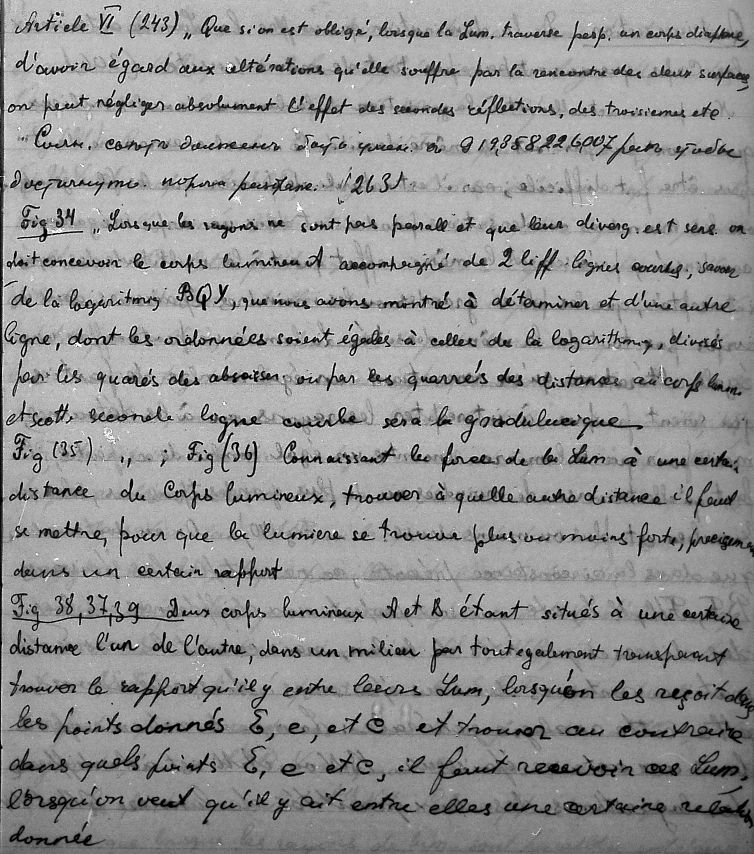 Article VI (243) „ Que si on est obligé, lorsque la Lum. traverse perp. un corps diaphane,
d'avoir égard aux altérations qu'elle souffre par la rencontre des deux surfaces,
on peut négliger absolument l'effet des secondes réflections, des troisiemes etc.
0,9858226007
263
Fig 34 „ Lorsque les rayons ne sont pas parall et que leur diverg. est sens. on
doit concevoir le corps lumineux A accompagné de 2 diff lignes courbes, savoir
de la logaritmiq BQY, que nous avons montré à déterminer et d'une autre
ligne, dont les ordonnées soient égales à celles de la logarithmiq, divisés
par les quarés des absisses ou par les quarrés des distances au corps lumin.
et cett seconde ligne courbe sera la gradulucique
Fig (35) „ ; Fig (36) Connaissant la force de la Lum à une certai.
distance du Corps lumineux, trouver à quelle autre distance il faut
se mettre, pour que la lumiere se trouve plus ou moins forte, precisemen
dans un certain rapport
Fig 38, 37, 39 Deux corps lumineux A et B étant situés à une certaine
distance l'un de l'autre, dans un milieu par tout egalement transparant
trouver le rapport qu'il y entre leurs Lum, lorsqu'on les reçoit dans
les points donnés E, e, et C et trouver au contraire
dans quels points E, e et C, il faut recevoir ces Lum,
lorsqu'on veut qu'il y ait entre elles une certaine relation
donnée